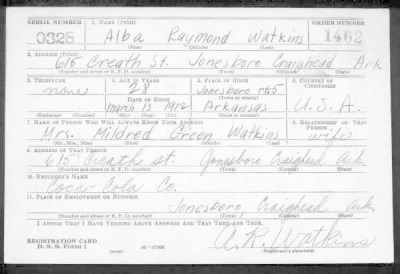 SERIAL NUMBER 1. NAME (PRINT) ORDER NUMBER
0328 Alba Raymond Watkins 1462
(First) (Middle) (Last)
2. ADDRESS (PRINT)
615 Creath St. Jonesboro Craighead Ark
(Number and street or R. F. D. number) (Town) (County) (State)
3. TELEPHONE 4. AGE IN YEARS 5. PLACE OF BIRTH 6. COUNTRY OF CITIZENSHIP
none 28 Jonesboro rt5
DATE OF BIRTH
March 13 1912 Arkansas U.S.A.
(Exchange) (Number) (Mo.) (Day) (Yr.) (State or country)
7. NAME OF PERSON WHO WILL ALWAYS KNOW YOUR ADDRESS 8. RELATIONSHIP OF THAT PERSON
Mrs. Mildred Green Watkins wife
(Mr., Mrs., Miss) (First) (Middle) (Last)
9. ADDRESS OF THAT PERSON
615 Creath st. Jonesboro Craighead Ark.
(Number and street or R. F. D. number) (Town) (County) (State)
10. EMPLOYER'S NAME
Coca-Cola Co.
11. PLACE OF EMPLOYMENT OR BUSINESS
Jonesboro, Craighead Ark.
(Number and street or R. F. D. number) (Town) (County) (State)
I AFFIRM THAT I HAVE VERIFIED ABOVE ANSWERS AND THAT THEY ARE TRUE.
REGISTRATION CARD A.R. Watkins
D. S. S. Form 1 (over) (Registrant's signature)